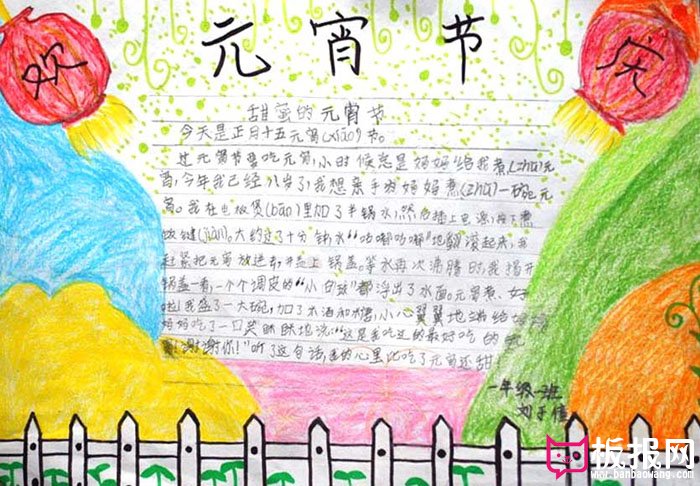 欢
元宵节
庆
甜蜜的元宵节
今天是正月十五元宵(xiāo)节。
过元宵节要吃元宵,小时候总是妈妈给我煮(zhǔ)元
宵,今年我已经八岁了,我想亲手为妈妈煮(zhǔ)一碗元
宵。我在电饭煲(bāo)里加了半锅水,然后插上电源,按下煮
饭键(jiàn)。大约过了十分钟水“咕嘟咕嘟”地翻滚起来,我
赶紧把元宵放进去,并盖上锅盖。等水再次沸腾时,我揭开
锅盖一看,一个个调皮的“小白球”都浮出了水面。元宵煮好
啦!我盛了一大碗,加了米酒和糖,小心翼翼地端给妈妈
妈妈吃了一口笑眯眯地说:“这是我吃过的最好吃的
谢谢你!”听了这句话,我的心里比吃了元宵还甜!
一年级一班
板报网
www.banbaowang.com